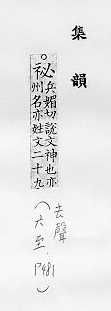 集韻
祕兵媚切說文神也亦
州名亦姓文二十九
去聲
(六至,P481)